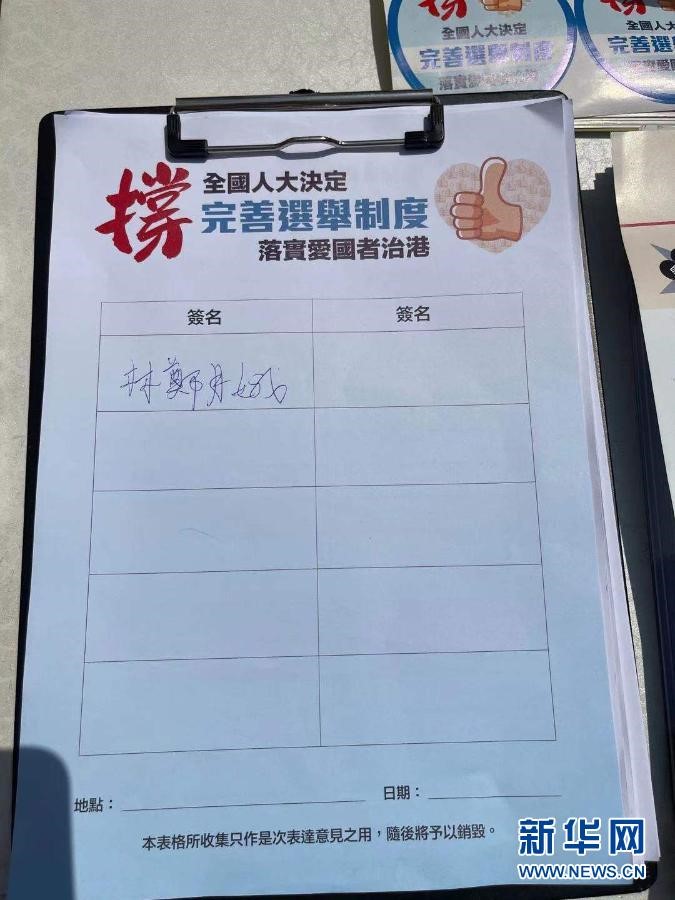 全國人大決定
完善選舉制度
落實愛國者治港
撐
全國人大決定
完善選舉制度
落實愛國者治港
簽名
簽名
林鄭月娥
地點：
日期：
本表格所收集只作是次表達意見之用，隨後將予以銷毀。
新华网
WWW.NEWS.CN